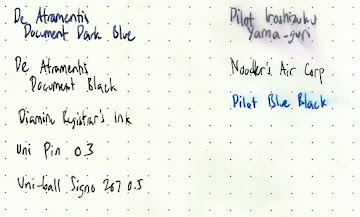 De Atramentis
Document Dark Blue
De Atramentis
Document Black
Diamine Registrar's Ink
Uni Pin 0.3
Uni-ball Signo 207 0.5
Pilot Iroshizuku
yama-guri
Noodler's Air Corp
Pilot Blue Black